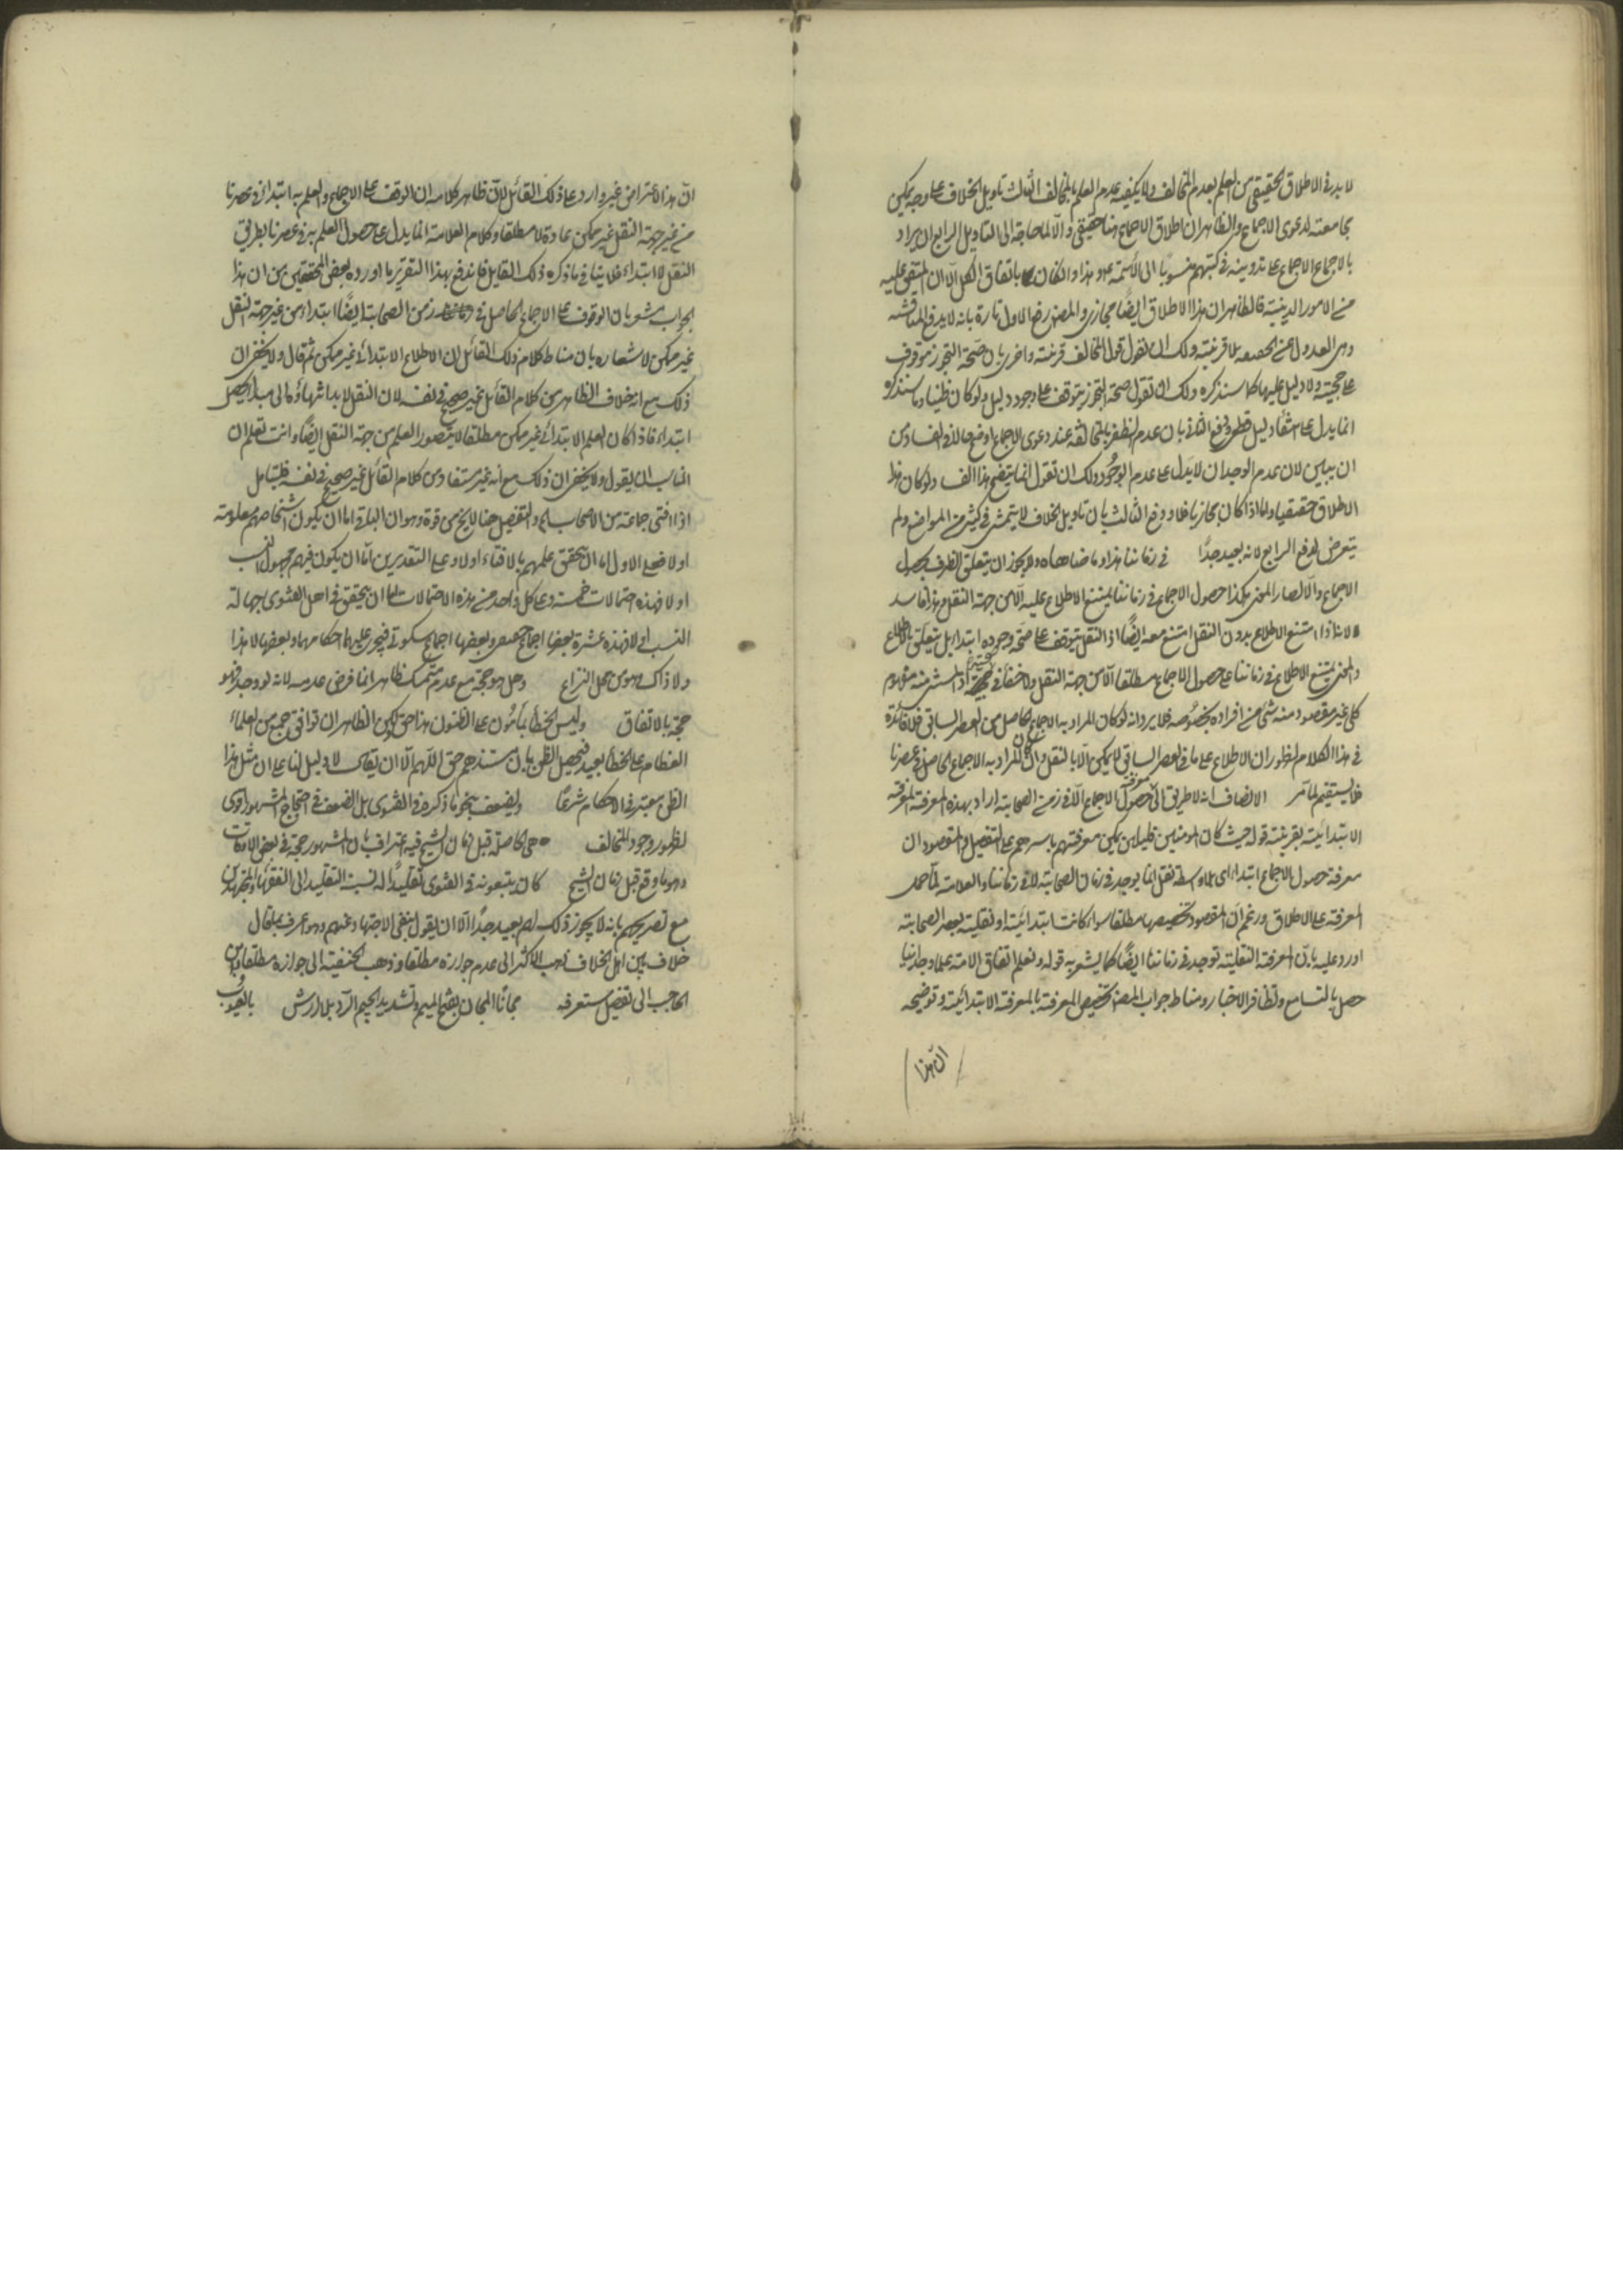 لا بد في الاطلاق الحقيقي من العلم بعدم المخالف ولا يكفيه عدم العلم بالمخالف الثالث تاويل الخلاف على وجه يمكن
مجامعته لدعوى الاجماع والظاهر ان اطلاق الاجماع هنا حقيقي والا لما حاجة الى التاويل الرابع ان يراد
بالاجماع الاجماع على تدوينه في كتبهم منسوبا الى الائمة عم وهذا وان كان باتفاق الكل الا ان المتفق عليه
من الامور الدينية فالظاهر ان هذا الاطلاق ايضا مجازي والمصنف رفع الاول تارة بانه لا يدفع المناقشه
وهي العدول عن الحقيقة بلا قرينته ولك ان تقول قول المخالف قرينته واخرى بان صحة التجوز موقوف
على حجية ولا دليل عليها كما سنذكره ولك ان تقول صحة التجوز يتوقف على وجود دليل ولو كان ظنيا وما سنذكره
انما يدل على انتفاء دليل قطعي ودفع الثاني بان عدم الظفر بالمخالف عند دعوى الاجماع اوضح حالا في الفساد من
ان يبين لان عدم الوجدان لا يدل على عدم الوجود ولك ان تقول انما يتضح هذا الفساد لو كان هذا
الاطلاق حقيقيا واما اذا كان مجازيا فلا ودفع الثالث بان تاويل الخلاف لا يتمشى في كثير من المواضع ولم
يتعرض لدفع الرابع لانه بعيد جدا في زماننا هذا وما ضاهاه ولا يجوز ان يتعلق الظرف بحصول
الاجماع والا لصار المعنى هكذا حصول الاجماع في زماننا يمتنع الاطلاع عليه الا من جهة النقل وهذا فاسد
لانا اذا امتنع الاطلاع بدون النقل امتنع معه ايضا اذ النقل يتوقف على صحة وجوده ابتداء بل يتعلق بالاطلاع
والمعنى يمتنع الاطلاع في زماننا على حصول الاجماع مطلقا الا من جهة النقل ولا خفاء في صحته اذ المستثنى منه مفهوم
كلي غير مقصود منه شئ من افراده بخصوصه فلا يرد انه لو كان المراد به الاجماع الحاصل من العصر السابق فلا فائدة
في هذا الكلام لظهور ان الاطلاع على ما في العصر السابق لا يمكن الا بالنقل وان كان المراد به الاجماع الحاصل في عصرنا
فلا يستقيم لما مر الانصاف انه لا طريق الى معرفة حصول الاجماع الا في زمن الصحابة اراد بهذه المعرفة المعرفة
الابتدائية بقرينته قوله حيث كان المؤمنين قليلين يمكن معرفتهم باسرهم على التفصيل والمقصود ان
معرفة حصول الاجماع ابتداء اي بلا واسطة نقل انما يوجد في زمان الصحابة لا في زماننا والعلامة لما حمل
المعرفة على الاطلاق وزعم ان المقصود تخصيصها مطلقا سواء كانت ابتدائية او نقلية بعصر الصحابة
اورد عليه بان المعرفة النقلية توجد في زماننا ايضا كما يشعر به قوله ونعلم اتفاق الامة علما وجدانيا
حصل بالتسامع وتظافر الاخبار ومناط جواب المصنف تخصيص المعرفة بالمعرفة الابتدائية وتوضيحه
ان هذا
ان هذا الاعتراض غير وارد على ذلك القائل لان ظاهر كلامه ان الوقف على الاجماع والعلم به ابتداء في عصرنا
من غير جهة النقل غير ممكن عادة لا مطلقا وكلام العلامة انما يدل على حصول العلم به في عصرنا بطريق
النقل لا ابتداء فلا ينافي ما ذكره ذلك القايل فاندفع بهذا التقرير ما اورده بعض المحققين من ان هذا
الجواب مشعر بان الوقوف على الاجماع الحاصل في زمن الصحابة ايضا ابتداء من غير جهة النقل
غير ممكن لاشعاره بان مناط كلام ذلك القائل ان الاطلاع الابتدائي غير ممكن ثم قال ولا يخفى ان
ذلك مع انه خلاف الظاهر من كلام القائل غير صحيح في نفسه لان النقل لا بد انتهاؤه الى مبدأ يحصل
ابتداء فاذا كان العلم الابتدائي غير ممكن مطلقا لا يتصور العلم من جهة النقل ايضا وانت تعلم ان
المناسب ان يقول ولا يخفى ان ذلك مع انه غير مستفاد من كلام القائل غير صحيح في نفسه فليتأمل
اذا افتى جماعة من الاصحاب الخ والتفصيل هنا لا يخ من قوة وهو ان الباقي اما ان يكون اشخاصهم معلومة
او لا فعلى الاول اما ان تحقق علمهم بالافتاء او لا وعلى التقديرين اما ان يكون فيهم مجهول النسب
او لا فهذه احتمالات خمسة وعلى كل واحد من هذه الاحتمالات اما ان يتحقق في اهل الفتوى جهالة
النسب او لا فهذه عشرة بعضها اجماع وبعضها اجماع سكوتي فيجري عليهما احكامهما وبعضها لا هذا
ولا ذاك وهو من محل النزاع وهل هو حجة مع عدم متمسك ظاهر انما فرض عدمه لانه لو وجد فهو
حجة بالاتفاق وليس الخطأ بمأمون على الظنون هذا حق لكن الظاهر ان توافق جمع من العلماء
العظام على الخطأ بعيد فيحصل الظن بان مستندهم حق اللهم الا ان يقال لا دليل لنا على ان مثل هذا
الظن معتبر في الاحكام شرعا ويضعف بنحو ما ذكره في الفتوى بل الضعف في احتجاج المشهور اقوى
لظهور وجود المخالف هي الحاصلة قبل زمان الشيخ فيه اعتراف بان المشهور حجة في بعض الاوقات
وهو ما وقع قبل زمان الشيخ كان يتبعونه في الفتوى تقليدا له نسبة التقليد الى الفقهاء المجتهدين
مع تصريحهم بانه لا يجوز ذلك لهم بعيد جدا الا ان يقول بنفي الاجتهاد عنهم وهو اعرف بما قال
خلاف بين اهل الخلاف ذهب الاكثر الى عدم جوازه مطلقا وذهب الحنفية الى جوازه مطلقا وابن
الحاجب الى تفصيل ستعرفه مجانا المجان بفتح الميم وتشديد الجيم الرد بلا ارش بالعيوب